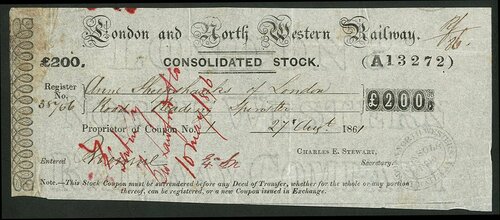 London and North Western Railway.
£200.
CONSOLIDATED STOCK.
(A13272)
Register No.
Anne Sheepshanks of London
Road Reading Spinster
£200
Proprietor of Coupon No. 1
27 Augt 1861
CHARLES E. STEWART,
Secretary.
Entered
10 May 1876
Note.—This Stock Coupon must be surrendered before any Deed of Transfer, whether for the whole or any portion
thereof, can be registered, or a new Coupon issued in Exchange.